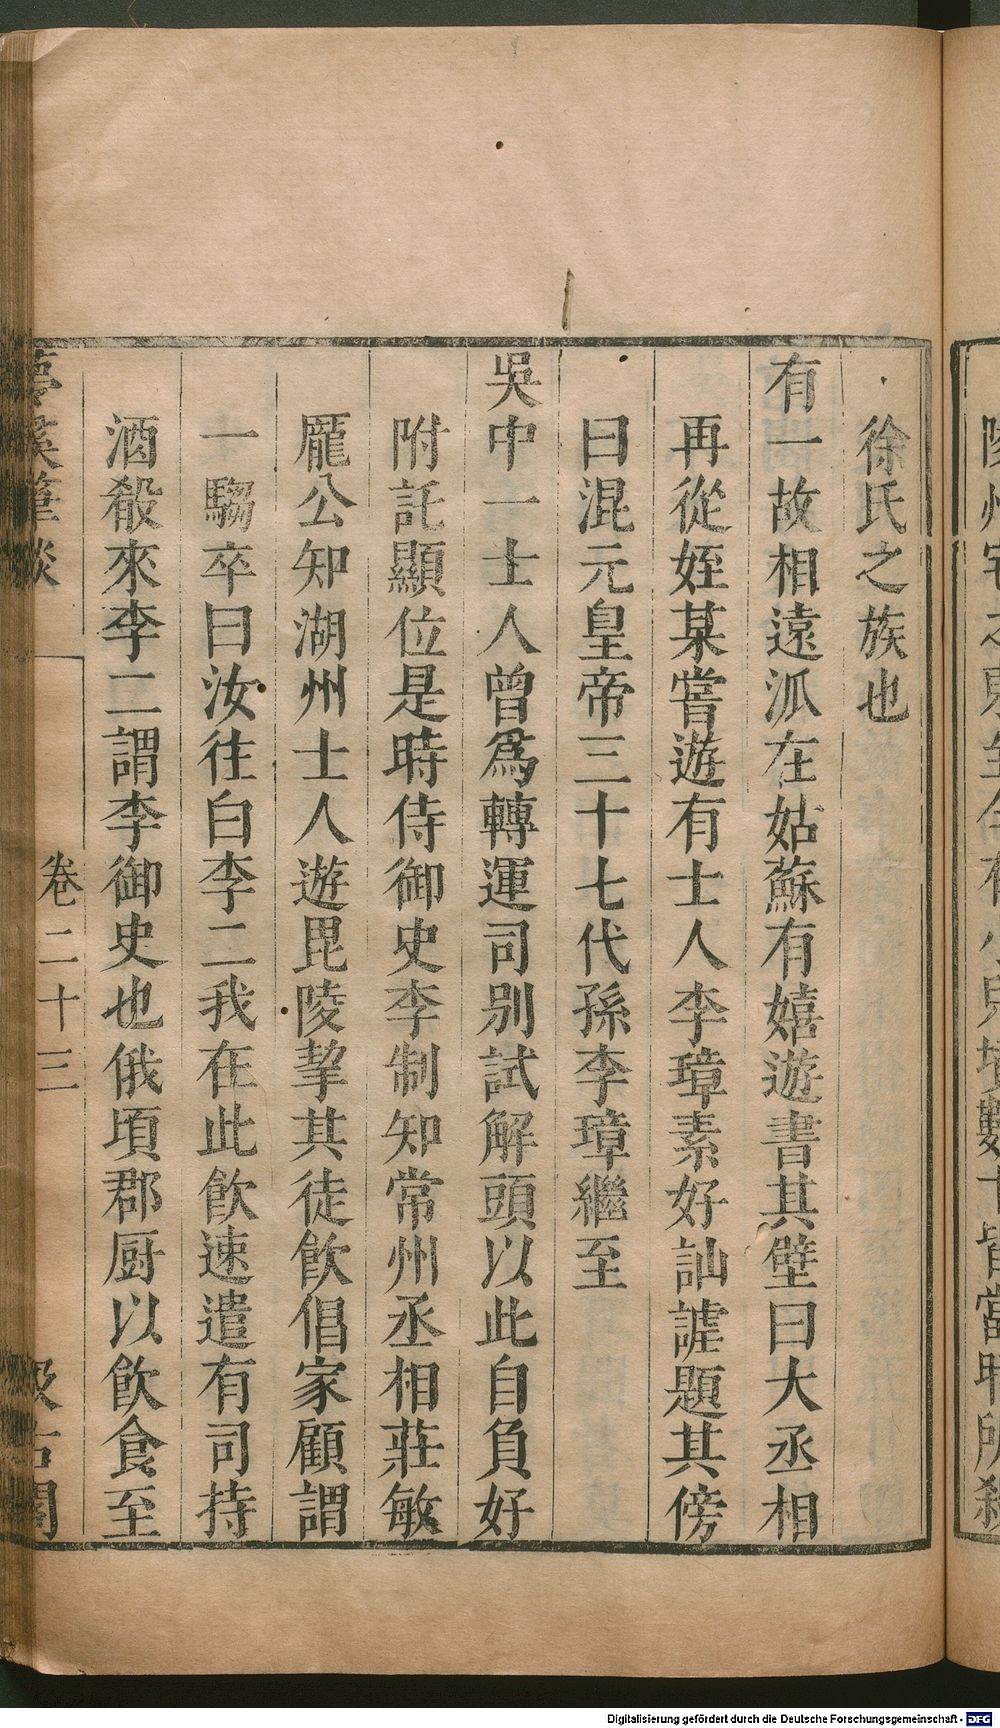 徐氏之族也
有一故相遠派在姑蘇有嬉遊書其壁曰大丞相
再從姪某嘗遊有士人李璋素好訕謔題其傍
曰混元皇帝三十七代孫李璋繼至
吳中一士人曾為轉運司別試解頭以此自負好
附託顯位是時侍御史李制知常州丞相莊敏
龐公知湖州士人遊毘陵挈其徒飲倡家顧謂
一騶卒曰汝往白李二我在此飲速遣有司持
酒殽來李二謂李御史也俄頃郡厨以飲食至
夢溪筆談
卷二十三
汲古閣
Digitalisierung gefördert durch die Deutsche Forschungsgemeinschaft - DFG